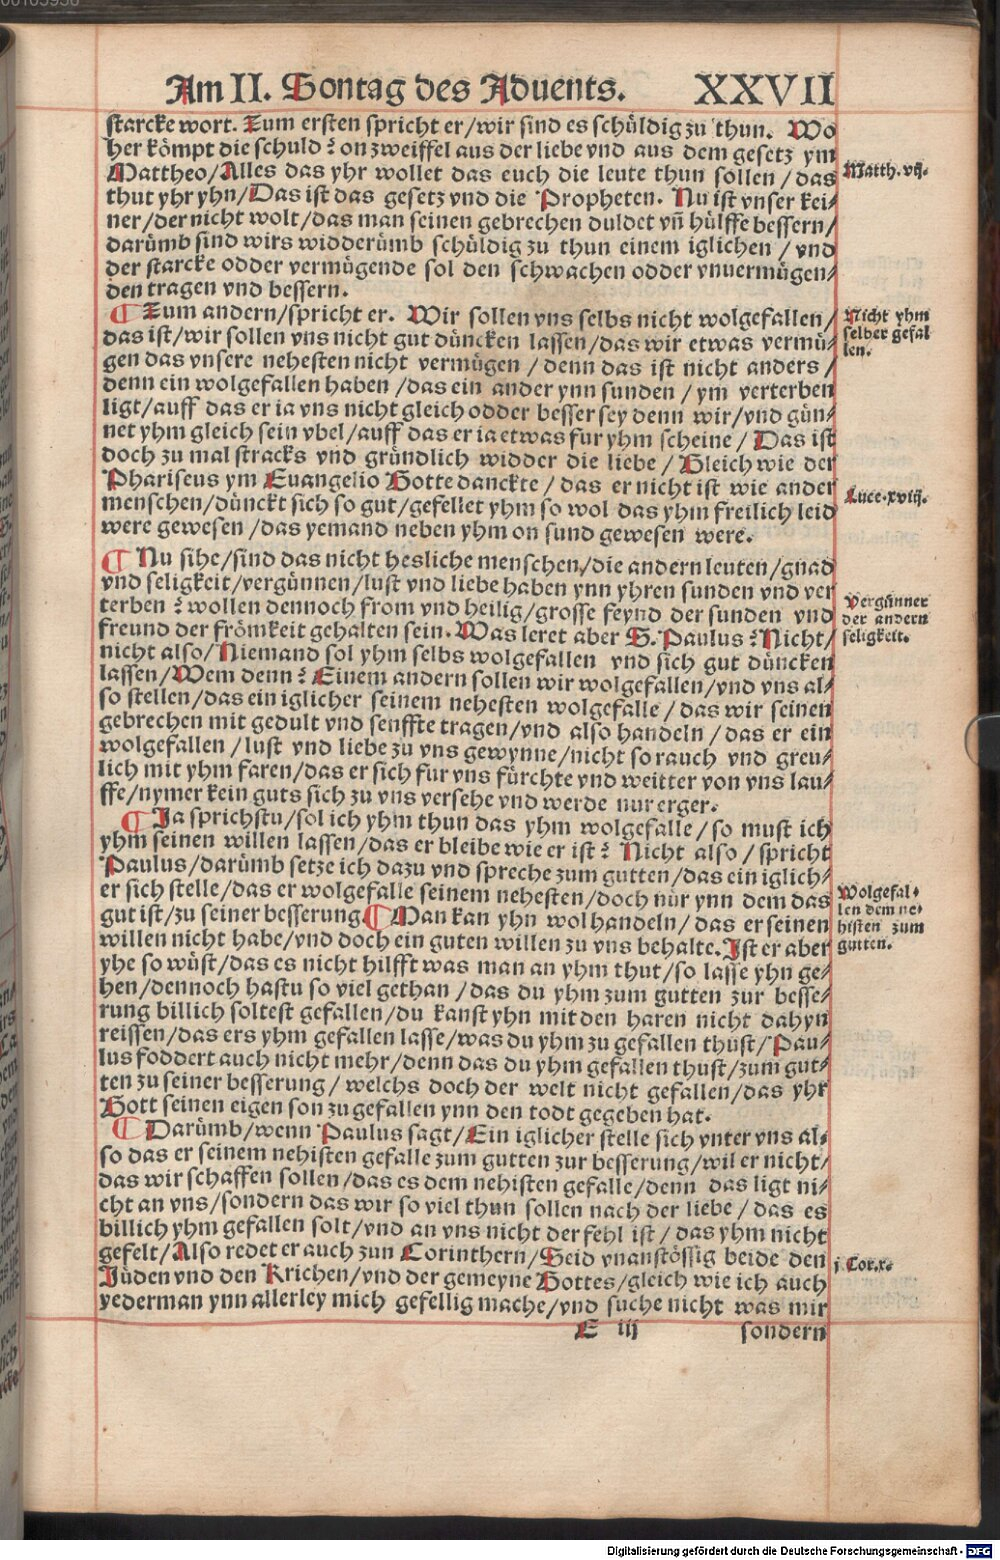 Am II. Sontag des Aduents. XXVII
starcke wort. Zum ersten spricht er/wir sind es schüldig zu thun. Wo
her kömpt die schuld? on zweiffel aus der liebe vnd aus dem gesetz ym
Mattheo/Alles das yhr wollet das euch die leute thun sollen/das
thut yhr yhn/Das ist das gesetz vnd die Propheten. Nu ist vnser kei⸗
ner/der nicht wolt/das man seinen gebrechen duldet vñ hülffe bessern/
darümb sind wirs widderümb schüldig zu thun einem iglichen/vnd
der starcke odder vermügende sol den schwachen odder vnuermügen⸗
den tragen vnd bessern.
Matth. vij.
¶ Zum andern/spricht er. Wir sollen vns selbs nicht wolgefallen/
das ist/wir sollen vns nicht gut düncken lassen/das wir etwas vermü⸗
gen das vnsere nehesten nicht vermügen/denn das ist nicht anders/
denn ein wolgefallen haben/das ein ander ynn sunden/ym verterben
ligt/auff das er ia vns nicht gleich odder besser sey denn wir/vnd gün⸗
net yhm gleich sein vbel/auff das er ia etwas fur yhm scheine/Das ist
doch zu mal stracks vnd gründlich widder die liebe/Gleich wie der
Phariseus ym Euangelio Gotte danckte/das er nicht ist wie ander
menschen/dünckt sich so gut/gefellet yhm so wol das yhm freilich leid
were gewesen/das yemand neben yhm on sund gewesen were.
Nicht yhm
selber gefal
len.
Luce. xviij.
¶ Nu sihe/sind das nicht hesliche menschen/die andern leuten/gnad
vnd seligkeit/vergünnen/lust vnd liebe haben ynn yhren sunden vnd ver
terben? wollen dennoch from vnd heilig/grosse feynd der sunden vnd
freund der frömkeit gehalten sein. Was leret aber S. Paulus? Nicht/
nicht also/Niemand sol yhm selbs wolgefallen vnd sich gut düncken
lassen/Wem denn? Einem andern sollen wir wolgefallen/vnd vns al⸗
so stellen/das ein iglicher seinem nehesten wolgefalle/das wir seinen
gebrechen mit gedult vnd senffte tragen/vnd also handeln/das er ein
wolgefallen/lust vnd liebe zu vns gewynne/nicht so rauch vnd greu⸗
lich mit yhm faren/das er sich fur vns fürchte vnd weitter von vns lau⸗
ffe/nymer kein guts sich zu vns versehe vnd werde nur erger.
Vergünner
der andern
seligkeit.
¶ Ja sprichstu/sol ich yhm thun das yhm wolgefalle/so must ich
yhm seinen willen lassen/das er bleibe wie er ist? Nicht also/spricht
Paulus/darümb setze ich dazu vnd spreche zum gutten/das ein iglich⸗
er sich stelle/das er wolgefalle seinem nehesten/doch nür ynn dem das
gut ist/zu seiner besserung. ¶ Man kan yhn wol handeln/das er seinen
willen nicht habe/vnd doch ein guten willen zu vns behalte. Ist er aber
yhe so wüst/das es nicht hilfft was man an yhm thut/so lasse yhn ge⸗
hen/dennoch hastu so viel gethan/das du yhm zum gutten zur besse⸗
rung billich soltest gefallen/du kanst yhn mit den haren nicht dahyn
reissen/das ers yhm gefallen lasse/was du yhm zu gefallen thust/Pau⸗
lus foddert auch nicht mehr/denn das du yhm gefallen thust/zum gut⸗
ten zu seiner besserung/welchs doch der welt nicht gefallen/das yhr
Gott seinen eigen son zu gefallen ynn den todt gegeben hat.
Wolgefal⸗
len dem ne⸗
histen zum
gutten.
¶ Darümb/wenn Paulus sagt/Ein iglicher stelle sich vnter vns al⸗
so das er seinem nehisten gefalle zum gutten zur besserung/wil er nicht/
das wir schaffen sollen/das es dem nehisten gefalle/denn das ligt ni⸗
cht an vns/sondern das wir so viel thun sollen nach der liebe/das es
billich yhm gefallen solt/vnd an vns nicht der fehl ist/das yhm nicht
gefelt/Also redet er auch zun Corinthern/Seid vnanstössig beide den
Jüden vnd den Krichen/vnd der gemeyne Gottes/gleich wie ich auch
yederman ynn allerley mich gefellig mache/vnd suche nicht was mir
j. Cor. x.
E iij sondern
Digitalisierung gefördert durch die Deutsche Forschungsgemeinschaft - DFG